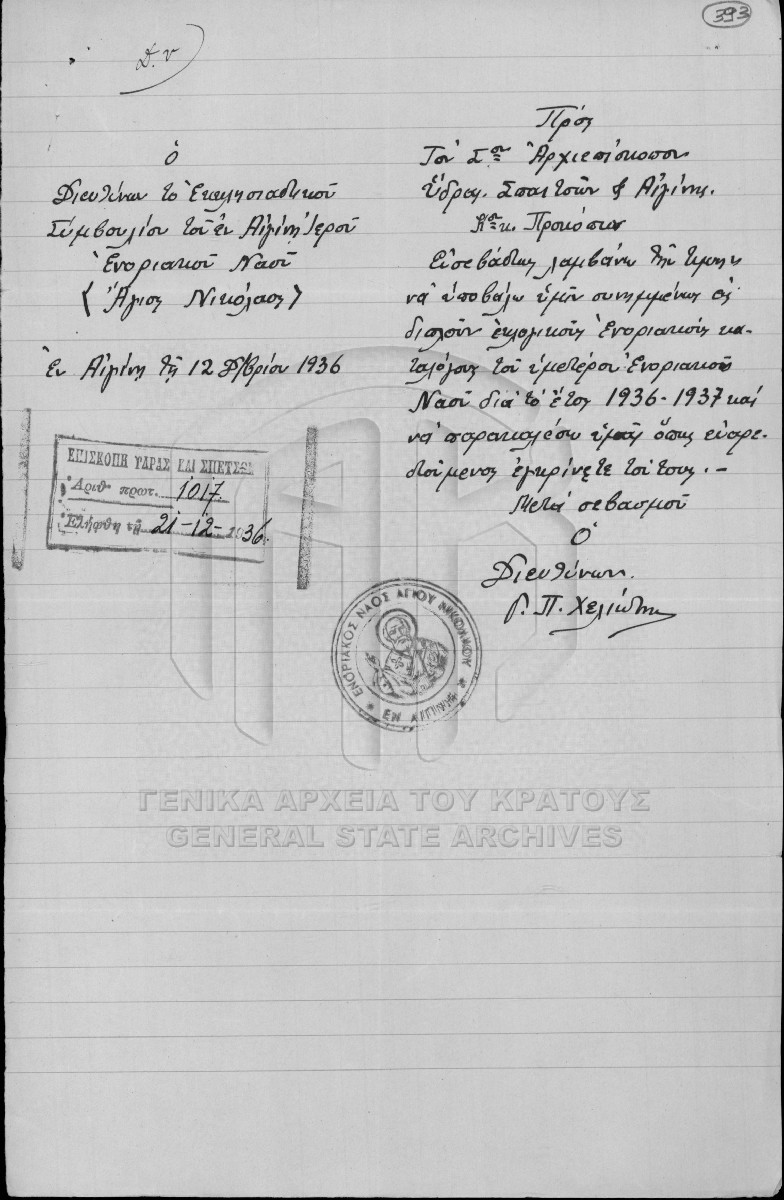 393
Δ. ν
Ὁ
Διευθύνων τὸ Ἐκκλησιαστικοῦ
Συμβουλίου τοῦ ἐν Αἰγίνῃ Ἱεροῦ
Ἐνοριακοῦ Ναοῦ
(Ἅγιος Νικόλαος)
Ἐν Αἰγίνῃ τῇ 12 Δ/βρίου 1936
ΕΠΙΣΚΟΠΗ ΥΔΡΑΣ ΚΑΙ ΣΠΕΤΣΩΝ
Ἀριθ. πρωτ. 1017.
Ἐλήφθη τῇ 21-12-1936.
Πρὸς
Τὸν Σον Ἀρχιεπίσκοπον
Ὕδρας, Σπετσῶν & Αἰγίνης.
κ. Προκόπιον
Εὐσεβάστως λαμβάνω τὴν τιμὴν
νὰ ὑποβάλω ὑμῖν συνημμένως εἰς
διπλοῦν ἐκλογικοὺς Ἐνοριακοὺς κα-
ταλόγους τοῦ ἡμετέρου Ἐνοριακοῦ
Ναοῦ διὰ τὸ ἔτος 1936-1937 καὶ
νὰ παρακαλέσω ὑμᾶς ὅπως εὐαρε-
στούμενος ἐγκρίνετε τούτους.-
Μετὰ σεβασμοῦ
Ὁ
Διευθύνων.
Γ. Π. Χελιώτης
ΕΝΟΡΙΑΚΟΣ ΝΑΟΣ ΑΓΙΟΥ ΝΙΚΟΛΑΟΥ
ΕΝ ΑΙΓΙΝΗ
ΓΕΝΙΚΑ ΑΡΧΕΙΑ ΤΟΥ ΚΡΑΤΟΥΣ
GENERAL STATE ARCHIVES